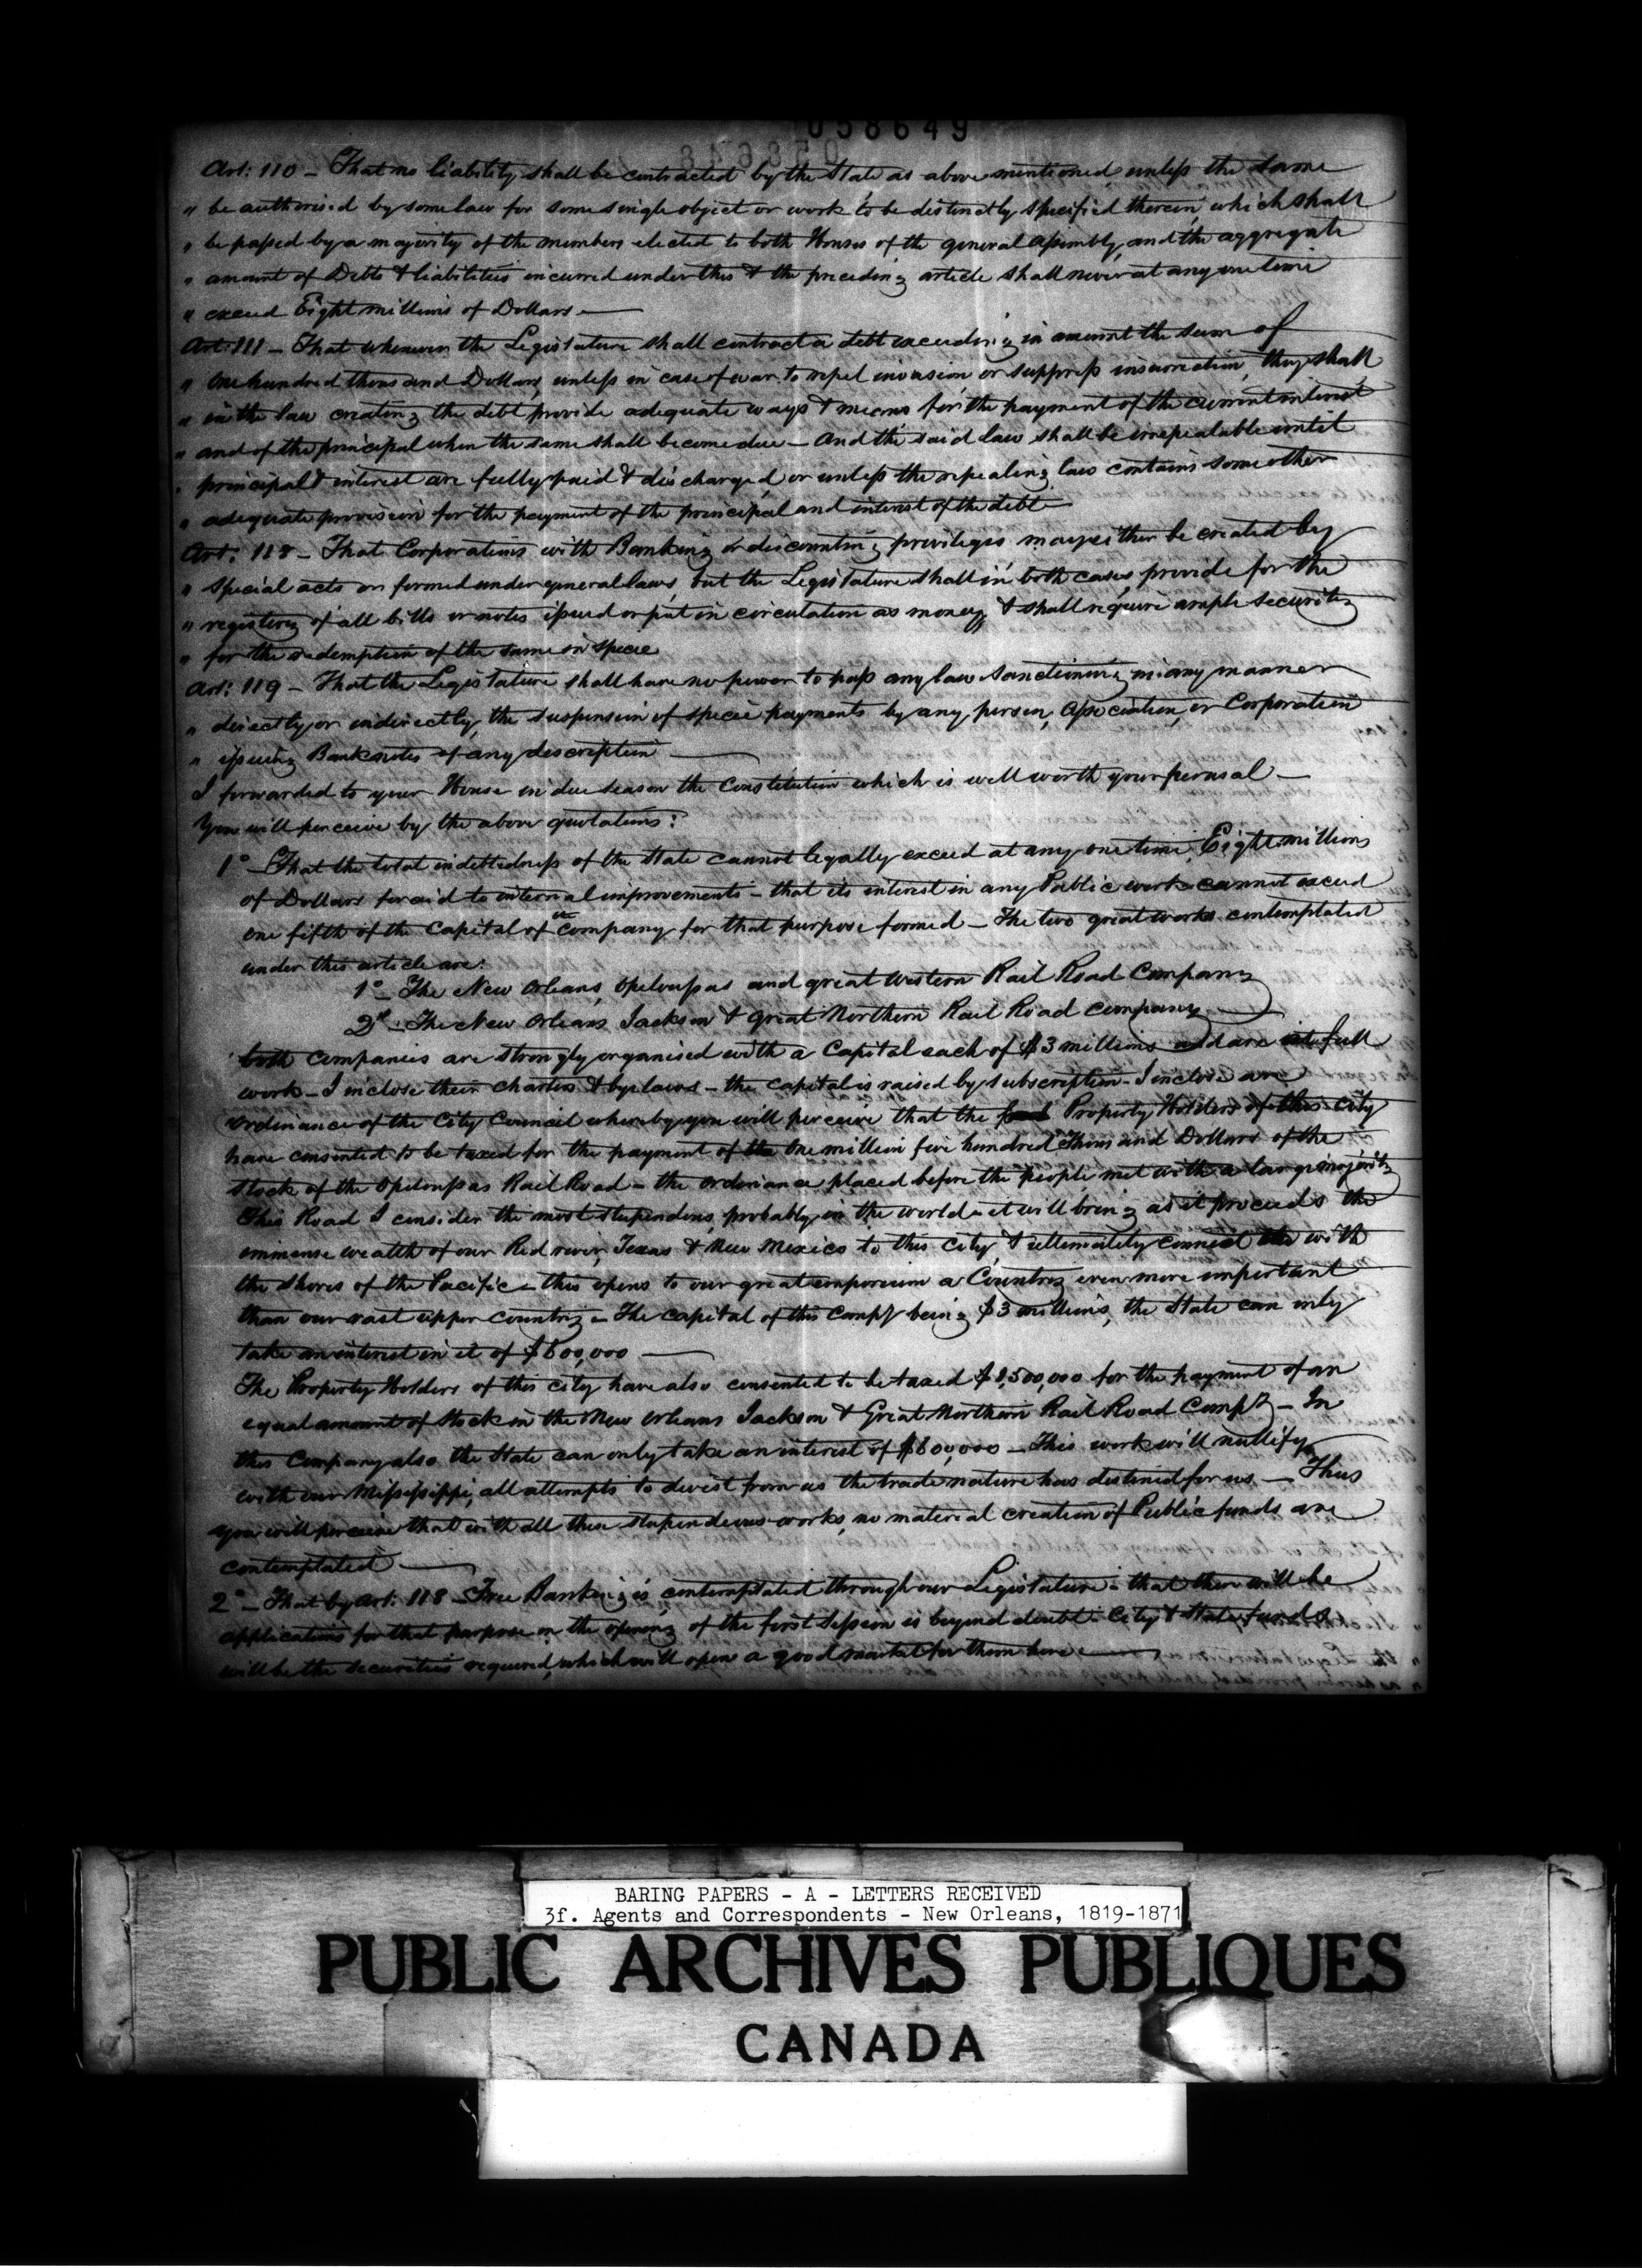 058649
Art: 110 – That no liability shall be contracted by the State as above mentioned unless the same
" be authorised by some law for some single object or work to be distinctly specified therein, which shall
" be passed by a majority of the members elected to both Houses of the general assembly, and the aggregate
" amount of Debts & liabilities incurred under this & the preceding article shall never at any one time
" exceed Eight millions of Dollars –
Art: 111 – That whenever the Legislature shall contract a debt exceeding in amount the sum of
" one hundred thousand Dollars, unless in case of war to repel invasion or suppress insurrection, they shall
" in the law creating the debt provide adequate ways & means for the payment of the current interest
" and of the principal when the same shall become due – And the said law shall be irrepealable until
" principal & interest are fully paid & discharged or unless the repealing law contains some other
" adequate provision for the payment of the principal and interest of the debt –
Art: 118 – That Corporations with Banking or discounting privileges may either be created by
" special acts or formed under general laws, but the Legislature shall in both cases, provide for the
" registery of all bills or notes issued or put in circulation as money & shall require ample security
" for the redemption of the same in specie
Art: 119 – That the Legislature shall have no power to pass any law sanctioning in any manner
" directly or indirectly, the suspension of specie payments by any person, association, or Corporation
" issuing Bank notes of any description –
I forwarded to your House in due season the Constitution which is well worth your perusal –
You will perceive by the above quotations:
1° – That the total indebtedness of the State cannot legally exceed at any one time, Eight millions
of Dollars for aid to internal improvements – that its interest in any Public work cannot exceed
one fifth of the Capital of the company for that purpose formed – The two great works contemplated
under this article are:
1° – The New Orleans, Opelousas and great Western Rail Road Company
2d – The New Orleans Jackson & Great Northern Rail Road Company –
both companies are strongly organised with a Capital each of $3 millions and are at full
work – I inclose their charters & bye laws – the capital is raised by subscription – I inclose an
ordinance of the City Council whereby you will perceive that the Property Holders of this City
have consented to be taxed for the payment of One million five hundred Thousand Dollars of the
stock of the Opelousas Rail Road – the ordinance placed before the people met with a large majority
This Road I consider the most stupendous, probably, in the world – it will bring as it proceeds the
immense wealth of our Red river, Texas & New Mexico to this city & ultimately connect with
the shores of the Pacific – this opens to our great emporium a Country even more important
than our vast upper country – The capital of this Compy being $3 millions, the State can only
take an interest in it of $600,000 –
The Property Holders of this city have also consented to be taxed $1,500,000 for the payment of an
equal amount of stock in the New Orleans Jackson & Great Northern Rail Road Compy – In
this Company also the State can only take an interest of $600,000 – This work will nullify,
with our Mississippi, all attempts to divest from us the trade nature has destined for us. – Thus
you will perceive that with all these stupendous works, no material creation of Public funds are
contemplated –
2° – That by Art: 118 – Free Banking is contemplated through our Legislature – that there will be
applications for that purpose on the opening of the first Session is beyond doubt – City & State funds
will be the securities required, which will open a good market for them here –
BARING PAPERS - A - LETTERS RECEIVED
3f. Agents and Correspondents - New Orleans, 1819-1871
PUBLIC ARCHIVES PUBLIQUES
CANADA